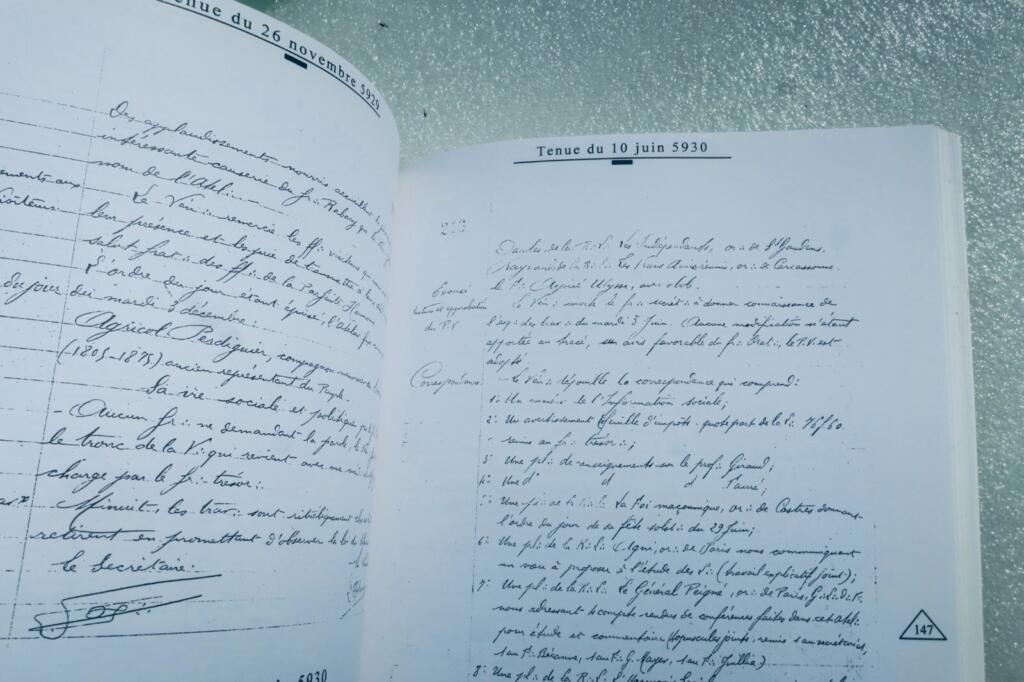 Tenue du 26 novembre 5929
Des applaudissements nourris accueillent
intéressante causerie du fr∴ Rabary qui
nom de l'Atel∴
Le Vén∴ remercie les ff∴ visiteurs
leur présence et les prie de transmettre à
salut frat∴ des ff∴ de la Parfaite
L'ordre du jour étant épuisé, l'Atelier
du jour
dei mardi 3 décembre:
Agricol Perdiguier, compagnon
(-1805-1875) ancien représentant du Peuple.
Sa vie sociale et politique
- Aucun fr∴ ne demandant la parole,
le tronc de la V∴ qui revient avec
charge par le fr∴ trésor∴
Minuit, les trav∴ sont rituéliquement
retirent en promettant d'observer la loi du
le Secrétaire:
5930
Tenue du 10 juin 5930
Darles, de la R∴L∴ Les Indépendants, or∴ de St Gaudens.
de la R∴L∴ Les Vrais Amis réunis, or∴ de Carcassonne.
le F∴ Aymé Ulysse, ex∴
lecture et approbation
du P.V
Le Vén∴ invite le fr∴ secrét∴ à donner connaissance de
l'esq∴ des trav∴ du mardi 3 Juin. Aucune modification n'étant
apportée au tracé, sur avis favorable du fr∴ Orat∴, le P.V. est
adopté.
Correspondance
- Le Vén∴ dépouille la correspondance qui comprend:
1°: Un numéro de l'Information sociale;
2°: Un avertissement (feuille d'impôts - quote part de la V∴ 76f60.
remis au fr∴ trésor∴;
3°: Une pl∴ de renseignements sur le prof∴ Giraud;
4°: Une d° d° d° Fauré;
5°: Une pl∴ de la R∴L∴ La Foi maçonnique, or∴ de Castres donnant
l'ordre du jour de sa fête solst∴ du 29 Juin;
6°: Une pl∴ de la R∴L∴ Agni, or∴ de Paris nous communiquant
un vœu à proposer à l'étude des L∴ (travail explicatif joint);
7°: Une pl∴ de la R∴L∴ Le Général Peigné, or∴ de Paris, G∴L∴D∴F.
nous adressant 4 compte-rendus de conférences faites dans cet atel∴
pour étude et commentaire (opuscules joints, remis 1 au secrétariat,
1 au F∴ Bécanne, 1 au F∴ G. Mayer, 1 au F∴ Juillia)
8°: Une pl∴ de la R∴L∴
147